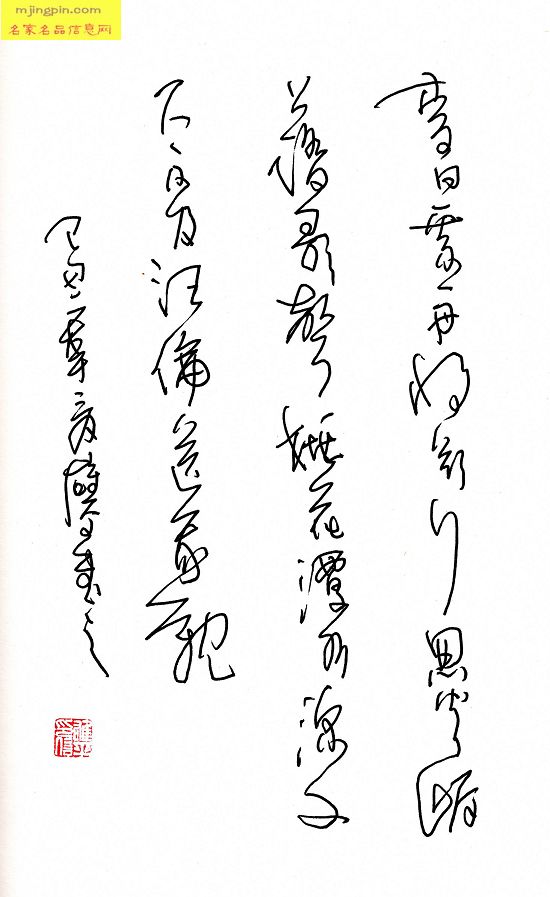 mjingpin.com
名家名品信息网
李白乘舟将欲行忽聞岸
上踏歌聲桃花潭水深千
尺不及汪倫送我情
書之